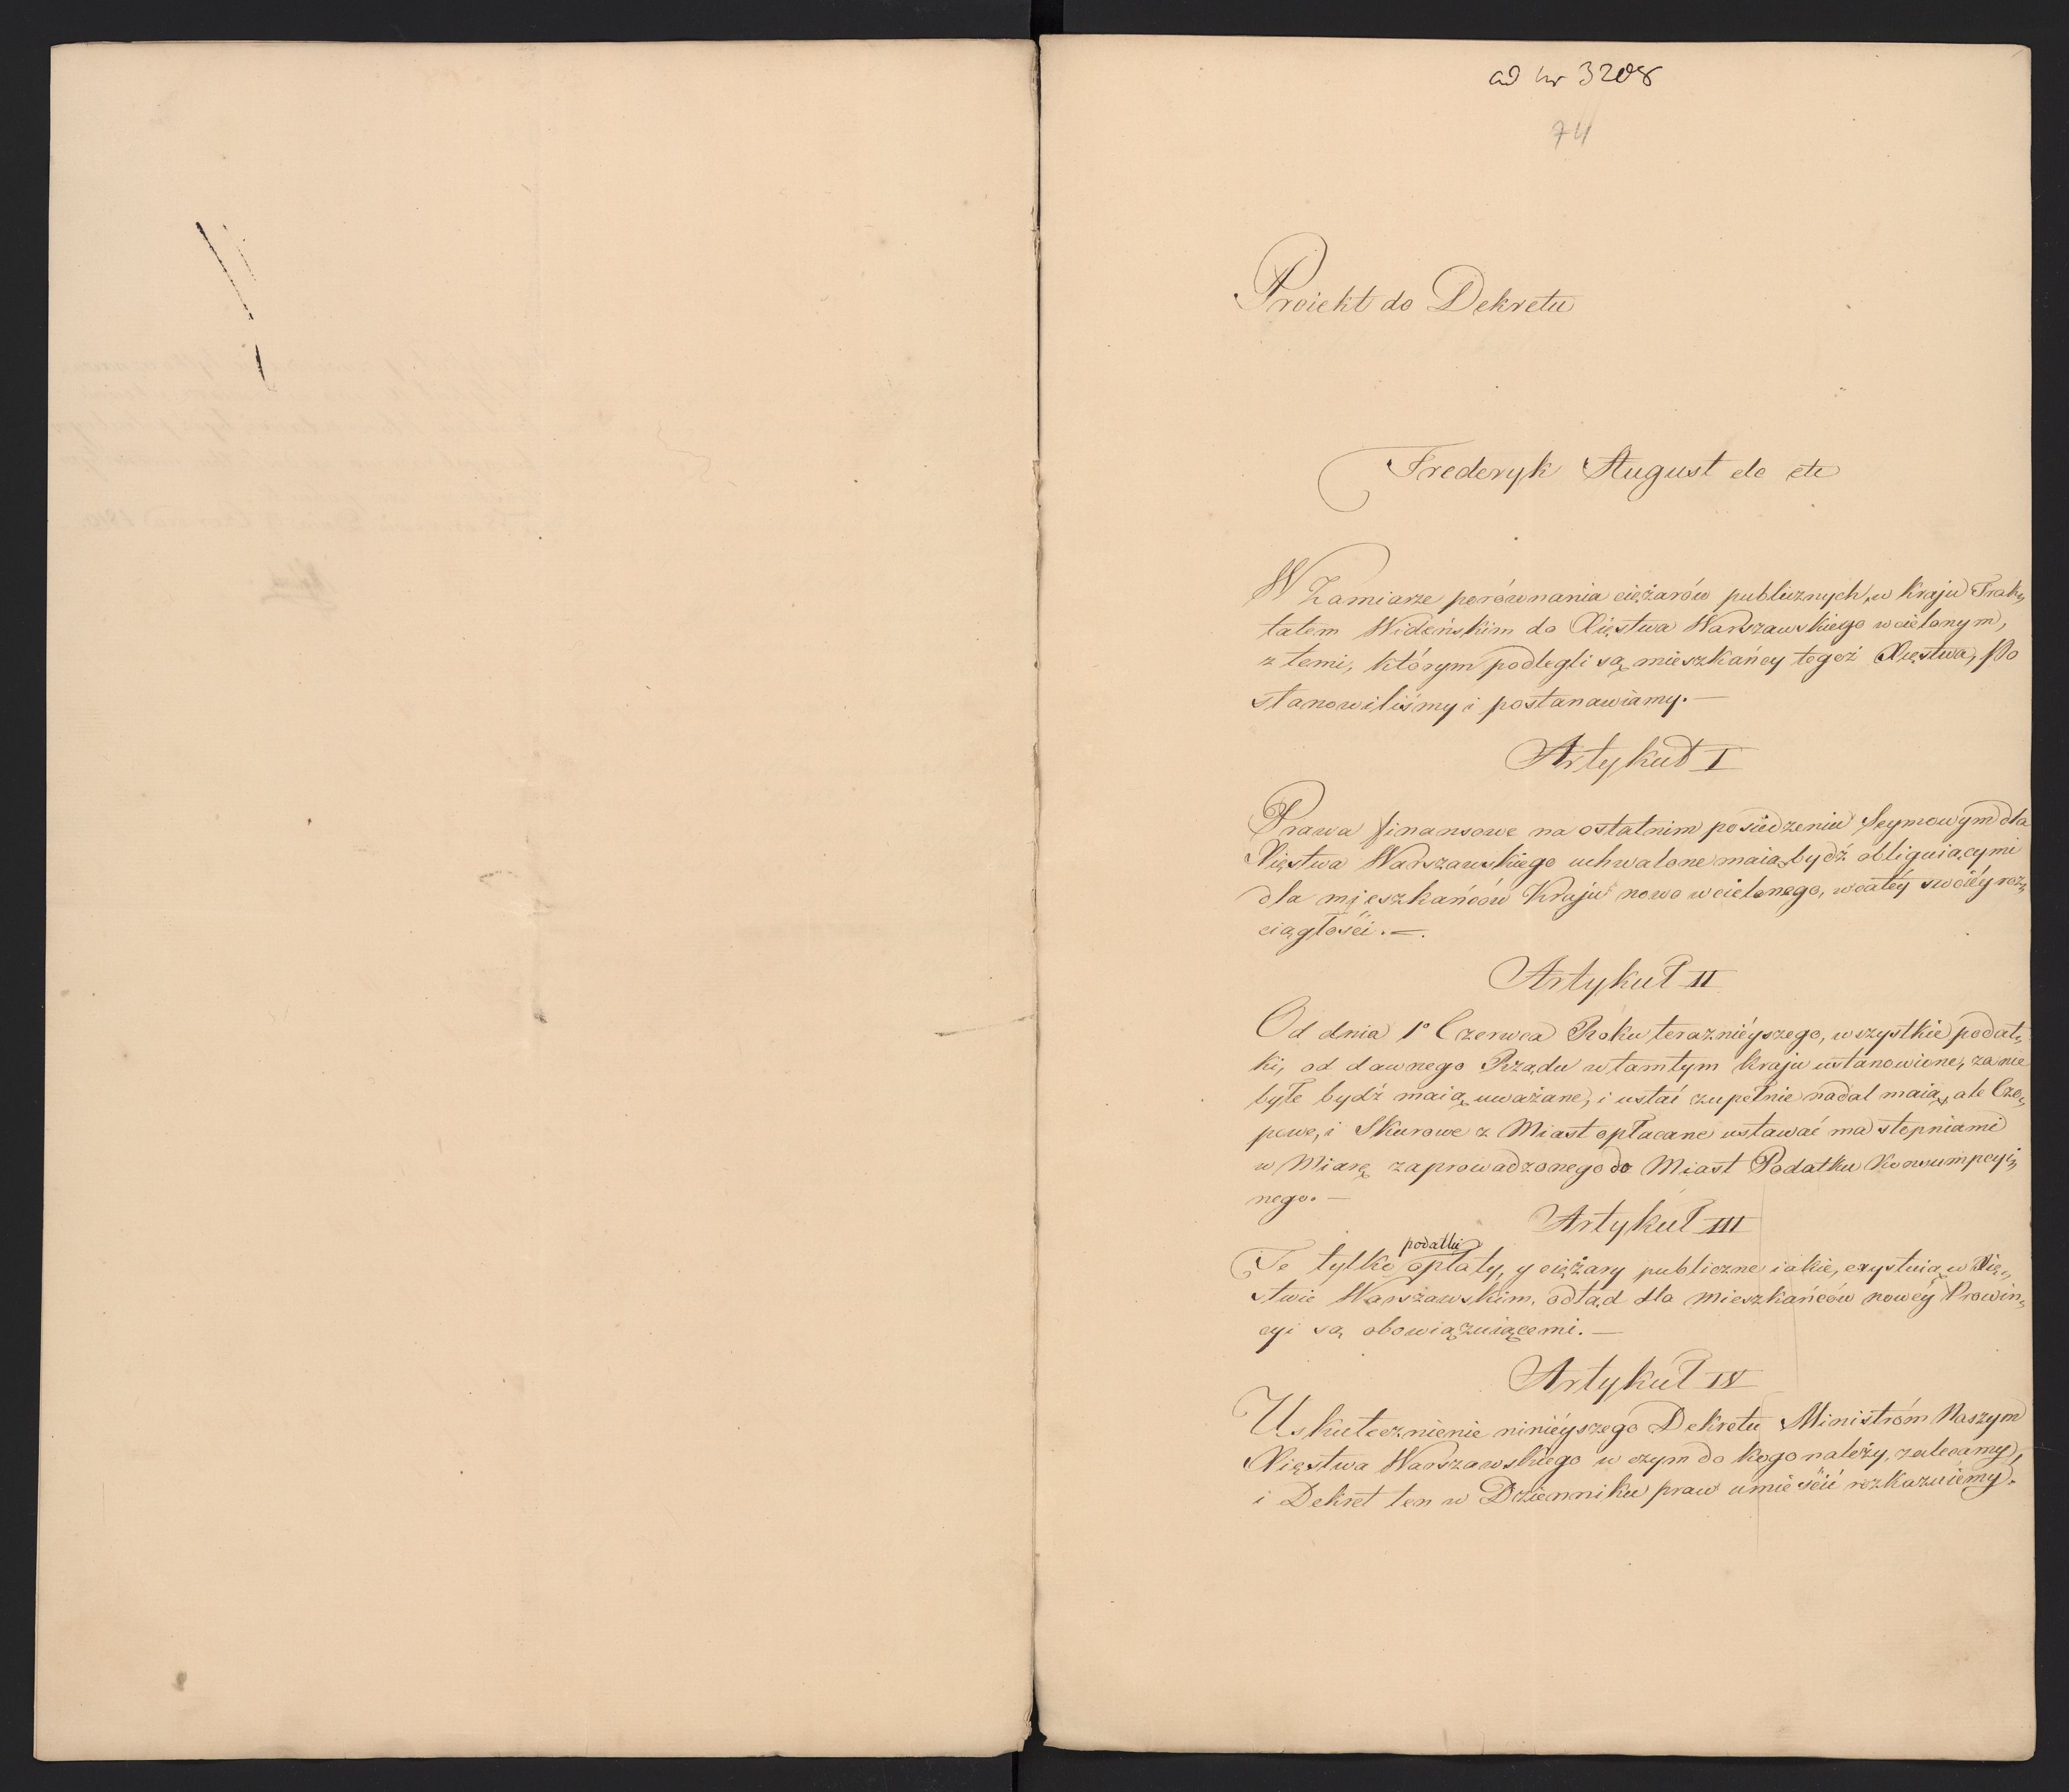 ad nr 3208
74
Proiekt do Dekretu
Frederyk August etc etc
W Zamiarze porównania ciężarów publicznych, w kraju Trak„
tatem Wideńskim do Xięstwa Warszawskiego wcielonym,
z temi, którym podlegli są mieszkańcy tegoż Xięstwa, Po
stanowiliśmy i postanawiamy. —
Artykuł I
Prawa finansowe na ostatnim posiedzeniu Seymowym dla
Xięstwa Warszawskiego uchwalone maią bydź obliguiącymi
dla mieszkańców Kraju nowo wcielonego, w całéy swoiéy roz„
ciągłości. —.
Artykuł II
Od dnia 1º Czerwca Roku terazniéyszego, wszystkie podat„
ki, od dawnego Rządu w tamtym kraju ustanowione, za nie
byłe bydź maią uważane, i ustać zupełnie nadal maią, ale Czo„
powe, i Skurowe z Miast opłacane ustawać ma stopniami
w Miarę zaprowadzonego do Miast Podatku Konsumpcyi„
nego. —
Artykuł III
podatki
Te tylko opłaty, y ciężary publiczne iakie, exystuią w Xię„
stwie Warszawskim, odtąd dla mieszkańców nowéy Prowin„
cyi są obowiązuiącemi. —
Artykuł IV
Uskutecznienie ninieyszego Dekretu Ministróm Naszym
Xięstwa Warszawskiego w czym do kogo należy, zalecamy,
i Dekret ten w Dzienniku praw umieścić rozkazuiémy.